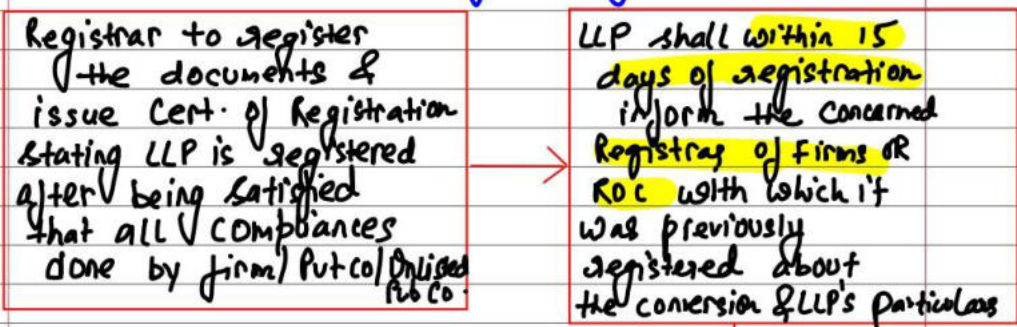 Registrar to register
the documents &
issue Cert. of Registration
stating LLP is registered
after being satisfied
that all compliances
done by firm/ Pvt co/ Unlisted
Pub Co.
LLP shall within 15
days of registration
inform the concerned
Registrar of Firms OR
ROC with which it
was previously
registered about
the conversion & LLP's particulars